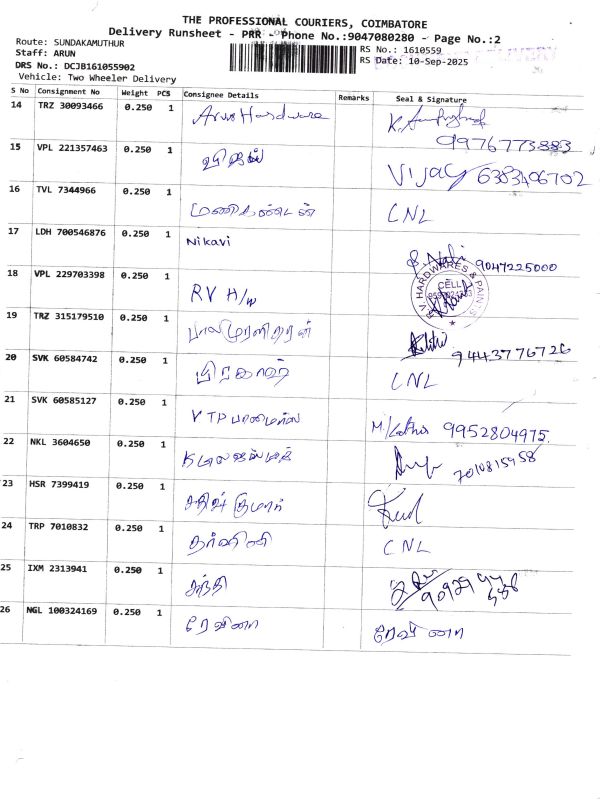 THE PROFESSIONAL COURIERS, COIMBATORE
Delivery Runsheet - PRR - Phone No.:9047080280 - Page No.:2
Route: SUNDAKAMUTHUR
Staff: ARUN
DRS No.: DCJB161055902
Vehicle: Two Wheeler Delivery
RS No.: 1610559
RS Date: 10-Sep-2025
S No Consignment No Weight PCS Consignee Details Remarks Seal & Signature
14 TRZ 30093466 0.250 1 Arun Hardware K.
9976773883
15 VPL 221357463 0.250 1 Vijay 6383406702
16 TVL 7344966 0.250 1 மணிகண்டன் CNL
17 LDH 700546876 0.250 1 Nikavi 9047225000
18 VPL 229703398 0.250 1 RV H/W R.V HARDWARES & PAINTS CELL
19 TRZ 315179510 0.250 1 பாலமுரளிதரன் 9443776726
20 SVK 60584742 0.250 1 CNL
21 SVK 60585127 0.250 1 VTP 9952804975
22 NKL 3604650 0.250 1 7010815958
23 HSR 7399419 0.250 1 சதிஷ் குமார்
24 TRP 7010832 0.250 1 தர்ஷினி CNL
25 IXM 2313941 0.250 1
26 NGL 100324169 0.250 1 ரேவினா